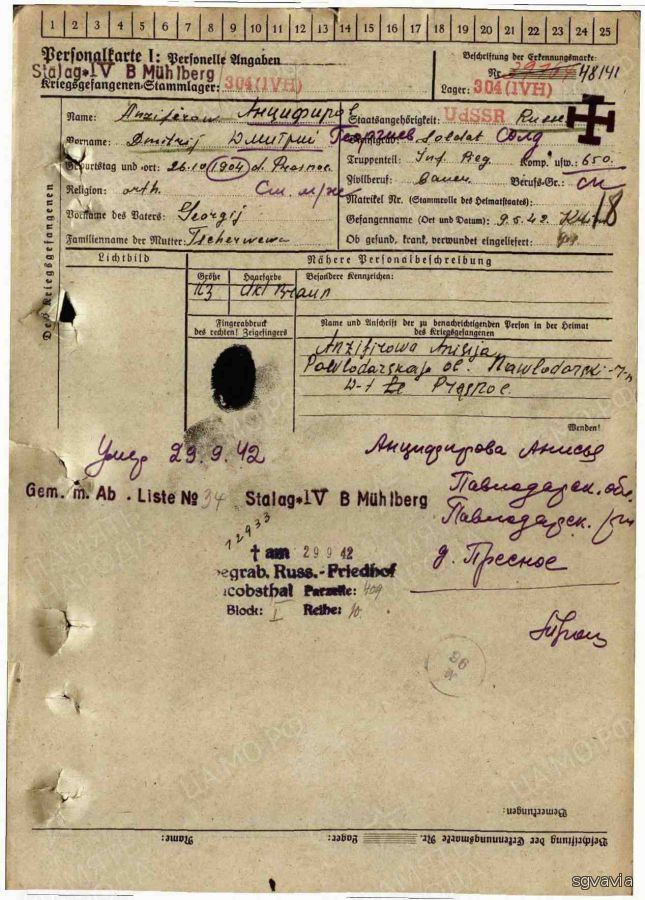 1 2 3 4 5 6 7 8 9 10 11 12 13 14 15 16 17 18 19 20 21 22 23 24 25
Personalkarte I: Personelle Angaben
Beschriftung der Erkennungsmarke:
Stalag IV B Mühlberg
Nr. 48141
Kriegsgefangenen-Stammlager: 304 (IVH)
Lager: 304 (IVH)
Des Kriegsgefangenen
Name: Anzifirow Анцифиров
Staatsangehörigkeit: UdSSR
Vorname: Dmitrij Дмитрий Георгиев
Dienstgrad: Soldat Солд
Geburtstag und -ort: 26.10.1904 d. Prasnoe
Truppenteil: Inf. Reg. Komp. usw.: 650.
Religion: orth.
Zivilberuf: Bauer Berufs-Gr.:
Matrikel Nr. (Stammrolle des Heimatstaates):
Vorname des Vaters: Georgij
Gefangennahme (Ort und Datum): 9.5.42
18
Familienname der Mutter:
Ob gesund, krank, verwundet eingeliefert:
Lichtbild
Nähere Personalbeschreibung
Größe Haarfarbe Besondere Kennzeichen:
Fingerabdruck
des rechten! Zeigefingers
Name und Anschrift der zu benachrichtigenden Person in der Heimat
des Kriegsgefangenen
Anzifirowa Anisija
Wenden!
Умер 29.9.42
Анцифирова Анисья
Gem. m. Ab. Liste № 34 Stalag IV B Mühlberg
Павлодарск. обл.
Павлодарск.
12933
† am 29 9 42
д. Пресное
begrab. Russ.-Friedhof
Jacobsthal Parzelle: 409
Block: I Reihe: 10
Bemerkungen:
Name: Lager: Beschriftung der Erkennungsmarke Nr.
ЦАМО РФ
sgvavia